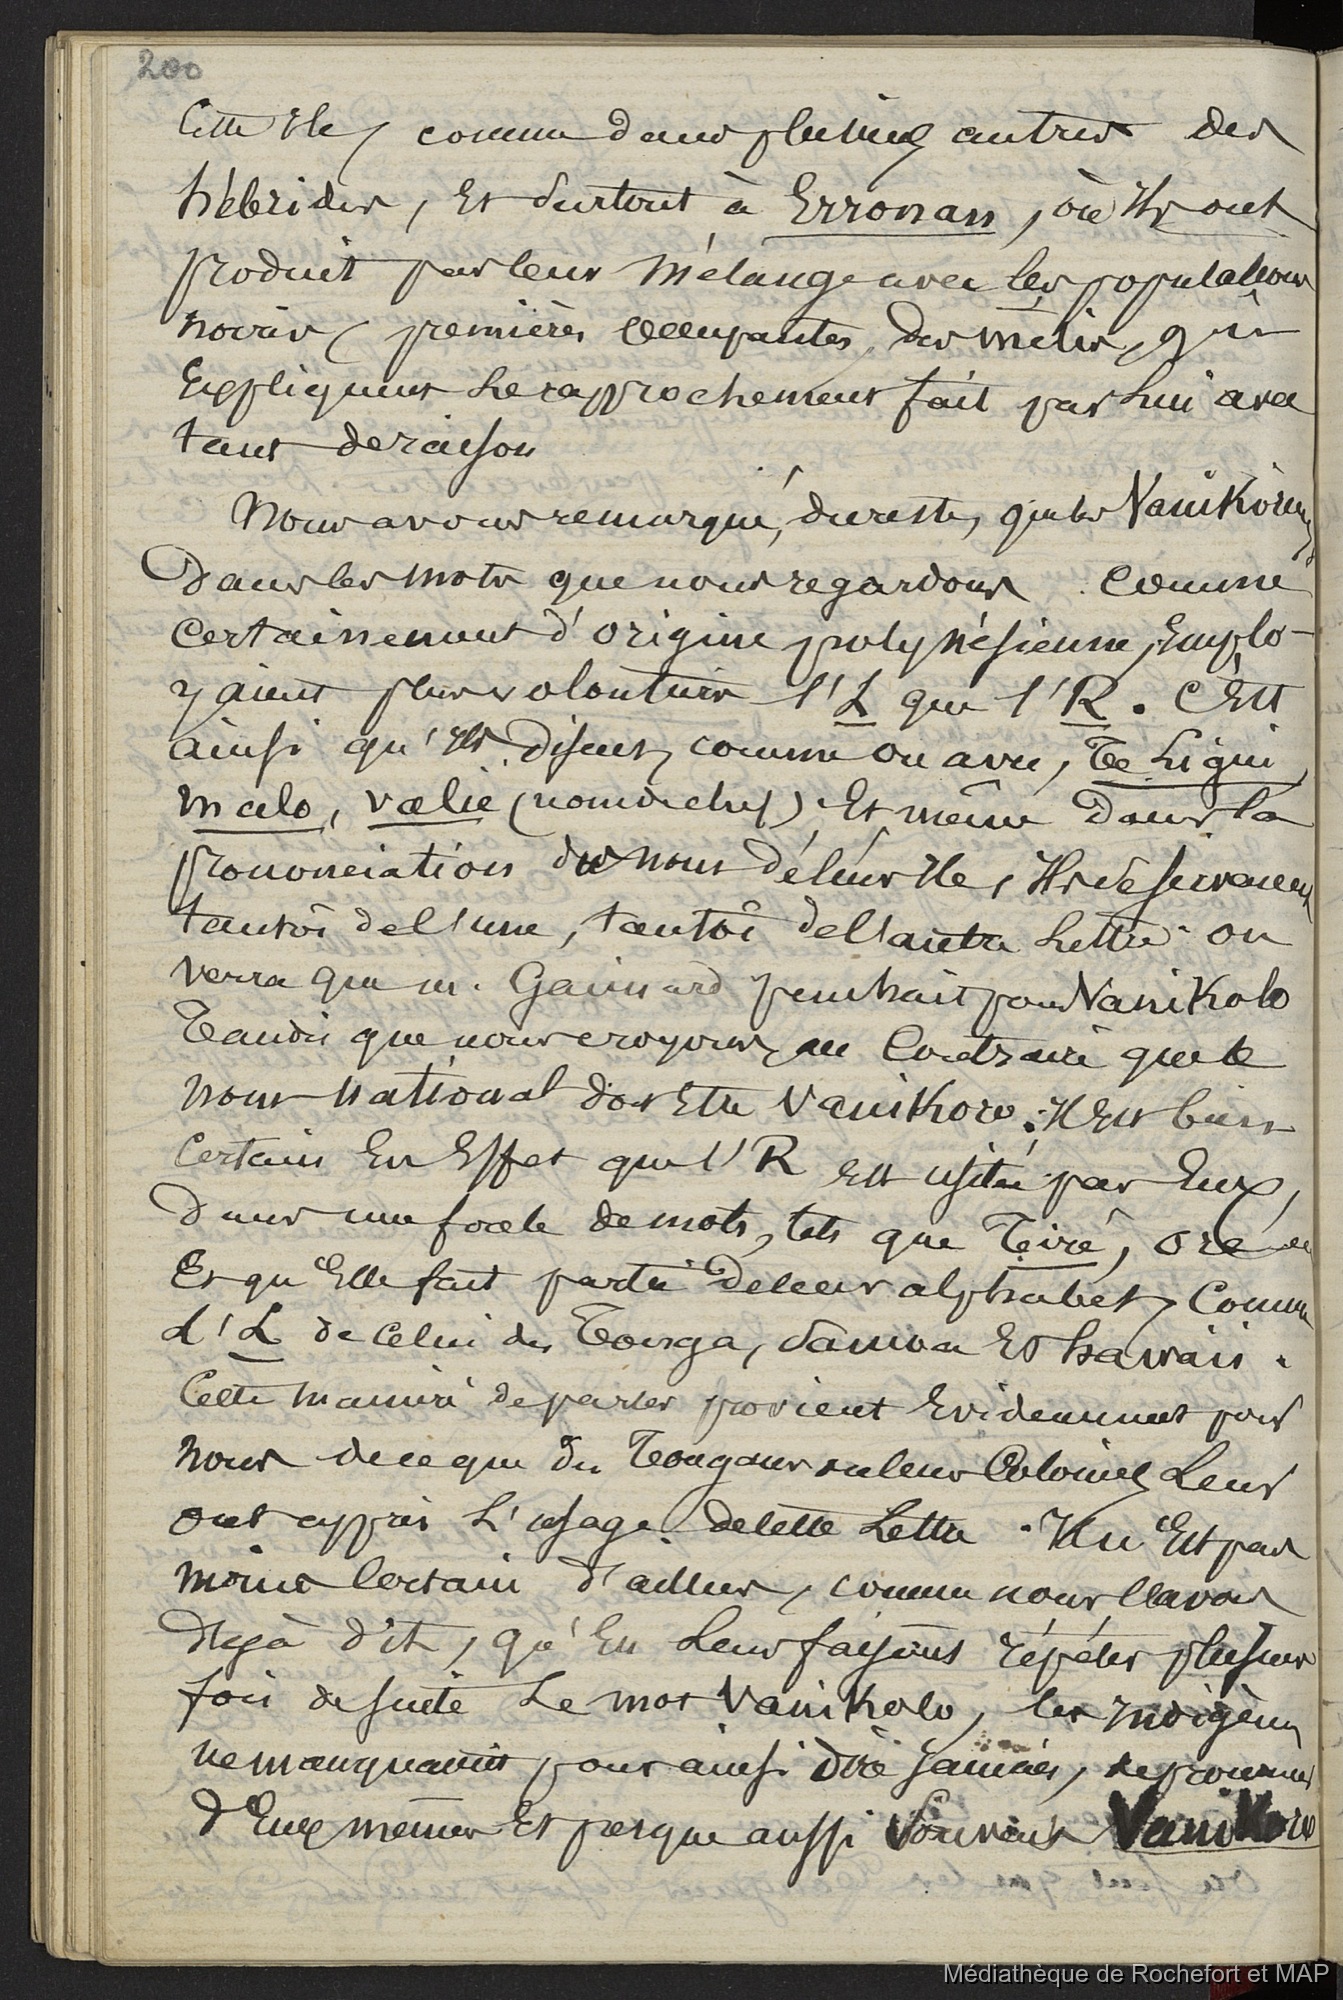 200
Cette ile, comme dans plusieurs autres des
hébrides, et surtout à Erronan, où ils ont
produit par leur mélange avec les populations
noires, premières occupantes, des métis, qui
expliquent le rapprochement fait par lui avec
tant de raison
Nous avons remarqué, du reste, que les Vanikoriens
dans les mots que nous regardons comme
certainement d'origine polynésienne, emplo-
yaient plus volontiers l'L que l'R. C'est
ainsi qu'ils disent, comme on a vu, Te Ligui
malo, vaelie (nom de chef). Et même dans la
prononciation du nom de leur ile, ils se servaient
tantôt de l'une, tantôt de l'autre lettre. on
verra que m. Gaimard penchait pour Vanikolo
Tandis que nous croyons au contraire que le
nom national doit être Vanikoro. Il est bien
certain en effet que l'R est usitée par eux,
dans une foule de mots, tels que Teiré, oré
et qu'elle fait partie de leur alphabet, comme
l'L de celui des Tonga, Samoa et hawaii.
Cette manière de parler provient évidemment pour
nous de ce que des Tongans ou leurs Colonies leur
ont appris l'usage de cette lettre. Il n'est pas
moins certain d'ailleurs, comme nous l'avons
déjà dit, qu'en leur faisant répéter plusieurs
fois de suite le mot Vanikolo, les indigènes
ne manquaient pour ainsi dire jamais, de prononcer
d'eux mêmes et presque aussi souvent Vanikoro
Médiathèque de Rochefort et MAP